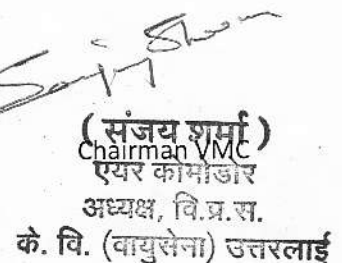 ( संजय शर्मा )
Chairman VMC
एयर कोमोडोर
अध्यक्ष, वि.प्र.स.
के. वि. (वायुसेना) उत्तरलाई